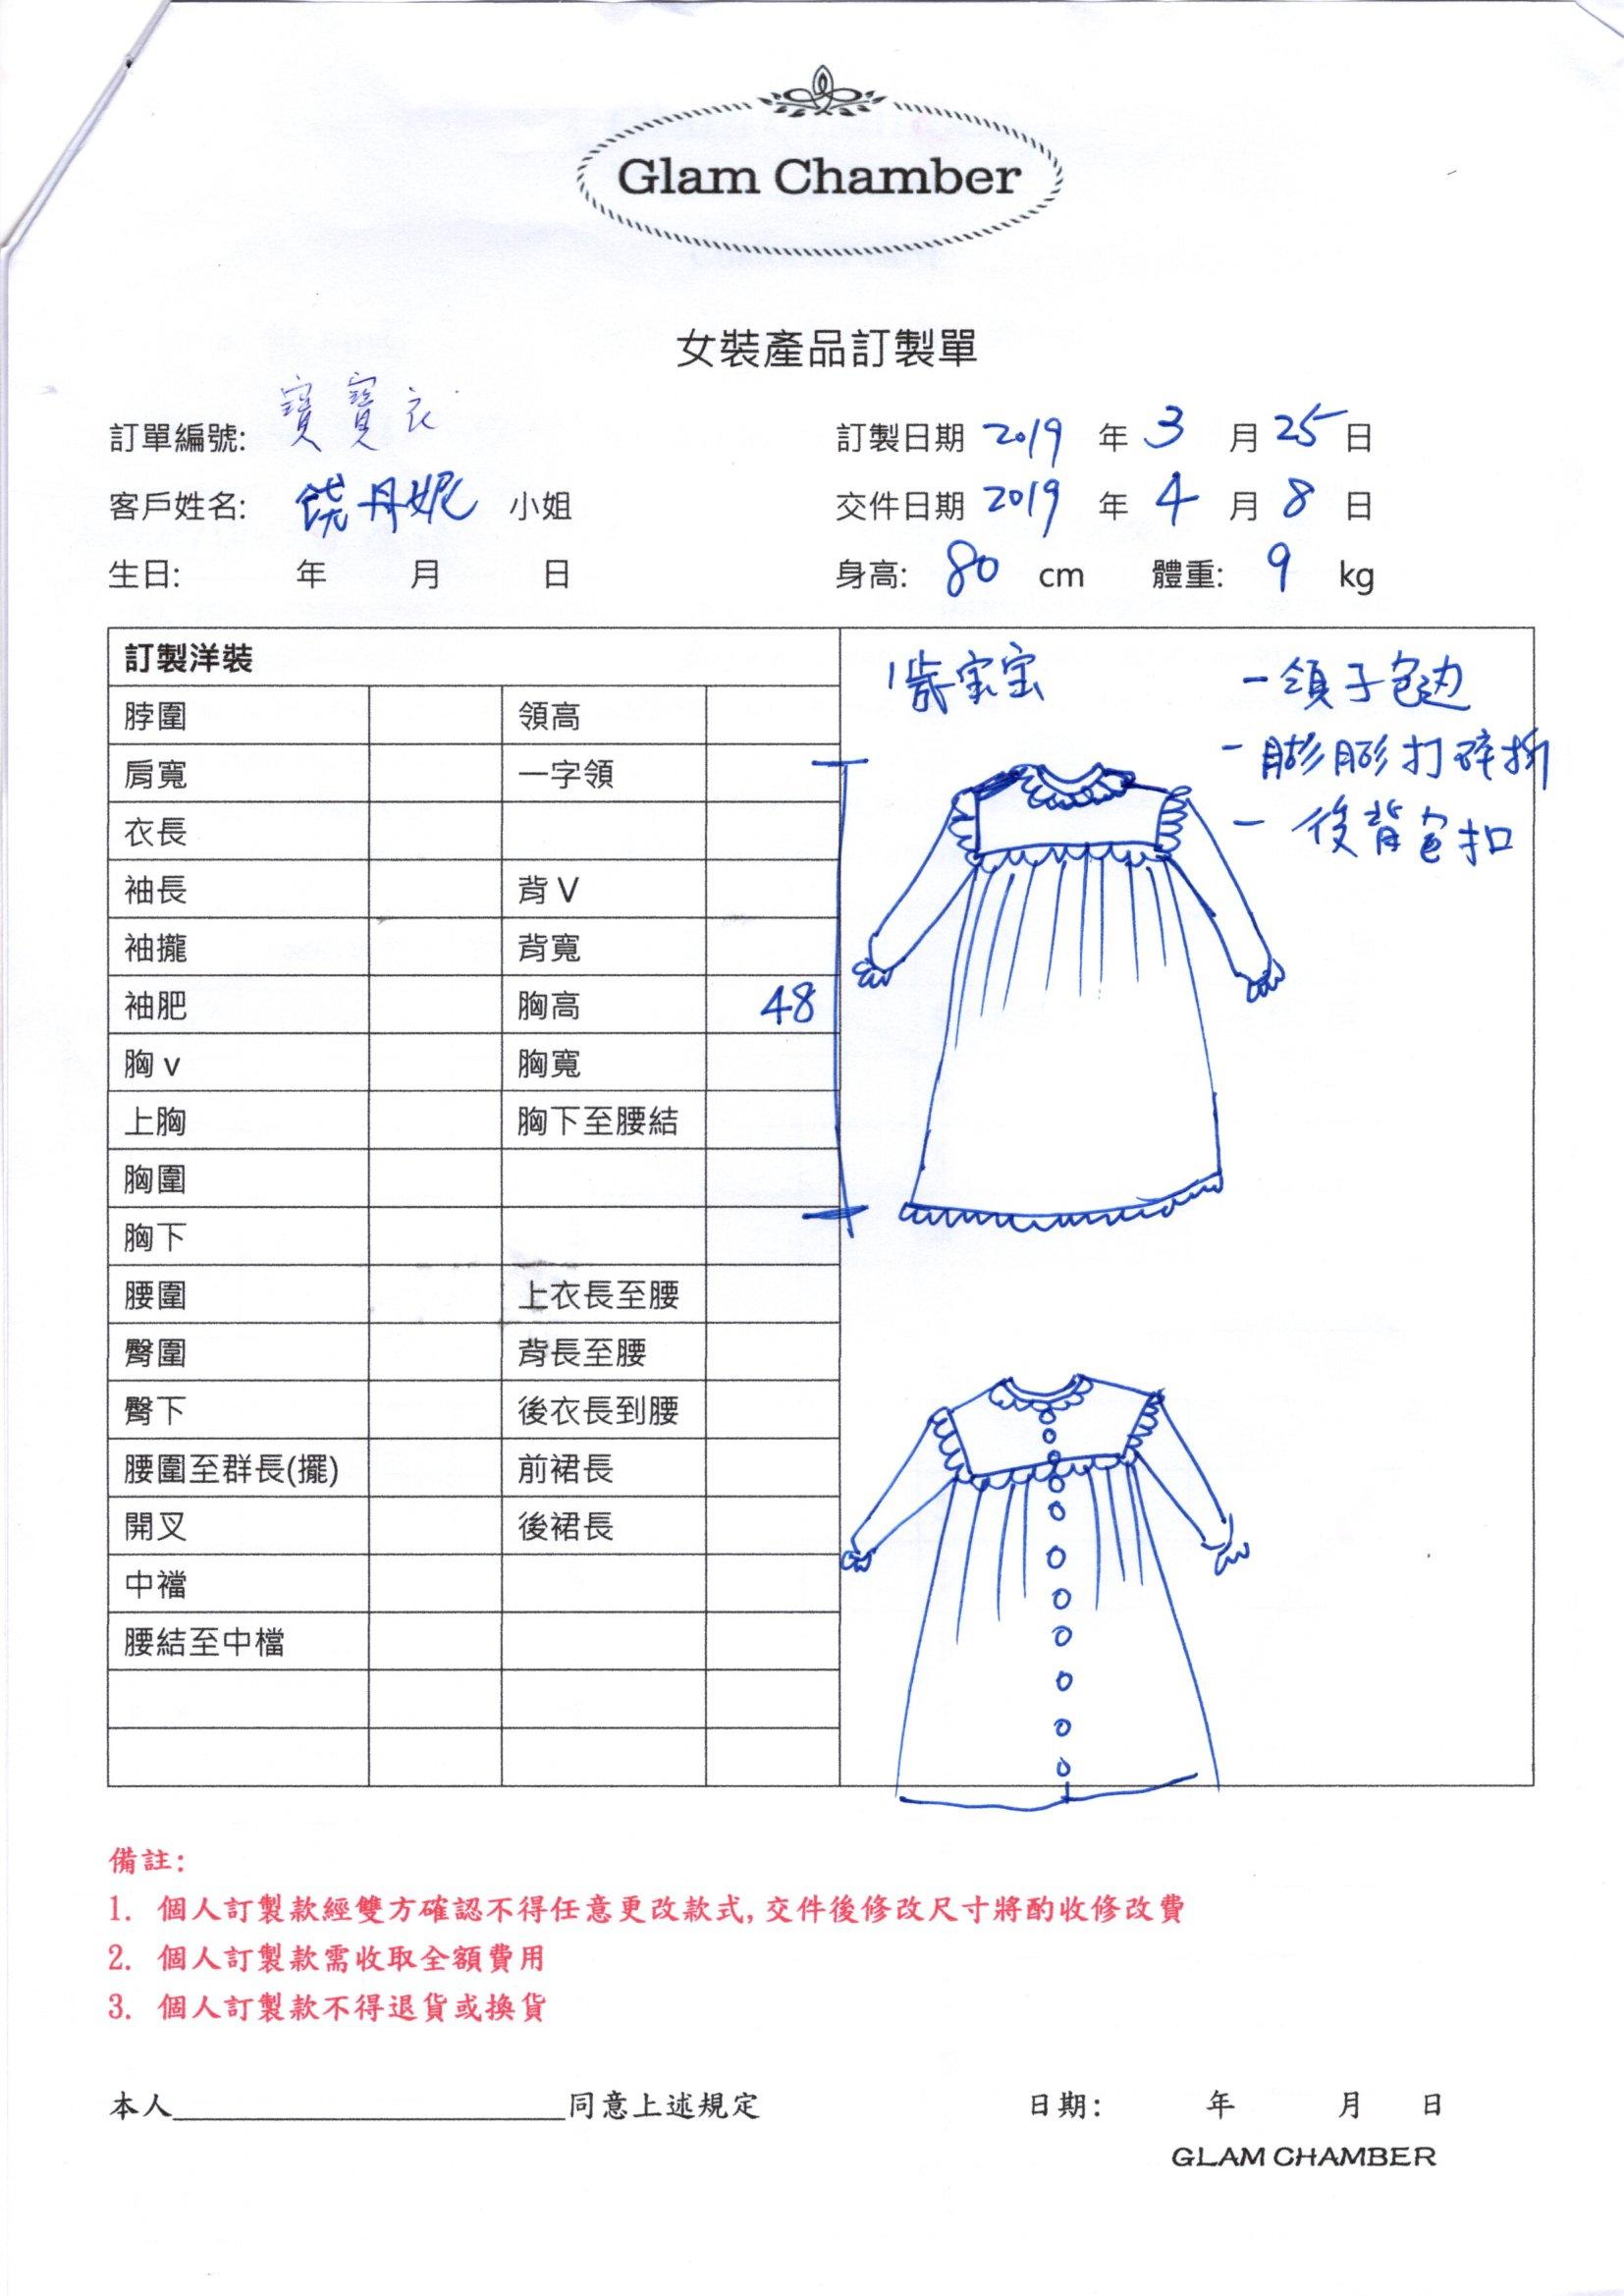 Glam Chamber
女裝產品訂製單
訂單編號: 寶寶衣
訂製日期 2019 年 3 月 25 日
客戶姓名: 饶丹妮 小姐
交件日期 2019 年 4 月 8 日
生日: 年 月 日
身高: 80 cm 體重: 9 kg
訂製洋裝
脖圍 領高
肩寬 一字領
衣長
袖長 背 V
袖攏 背寬
袖肥 胸高
胸 v 胸寬
上胸 胸下至腰結
胸圍
胸下
腰圍 上衣長至腰
臀圍 背長至腰
臀下 後衣長到腰
腰圍至群長(擺) 前裙長
開叉 後裙長
中襠
腰結至中檔
1歲宝宝
- 領子包边
- 膨膨打碎折
- 後背包扣
48
備註:
1. 個人訂製款經雙方確認不得任意更改款式, 交件後修改尺寸將酌收修改費
2. 個人訂製款需收取全額費用
3. 個人訂製款不得退貨或換貨
本人________________________同意上述規定
日期: 年 月 日
GLAM CHAMBER